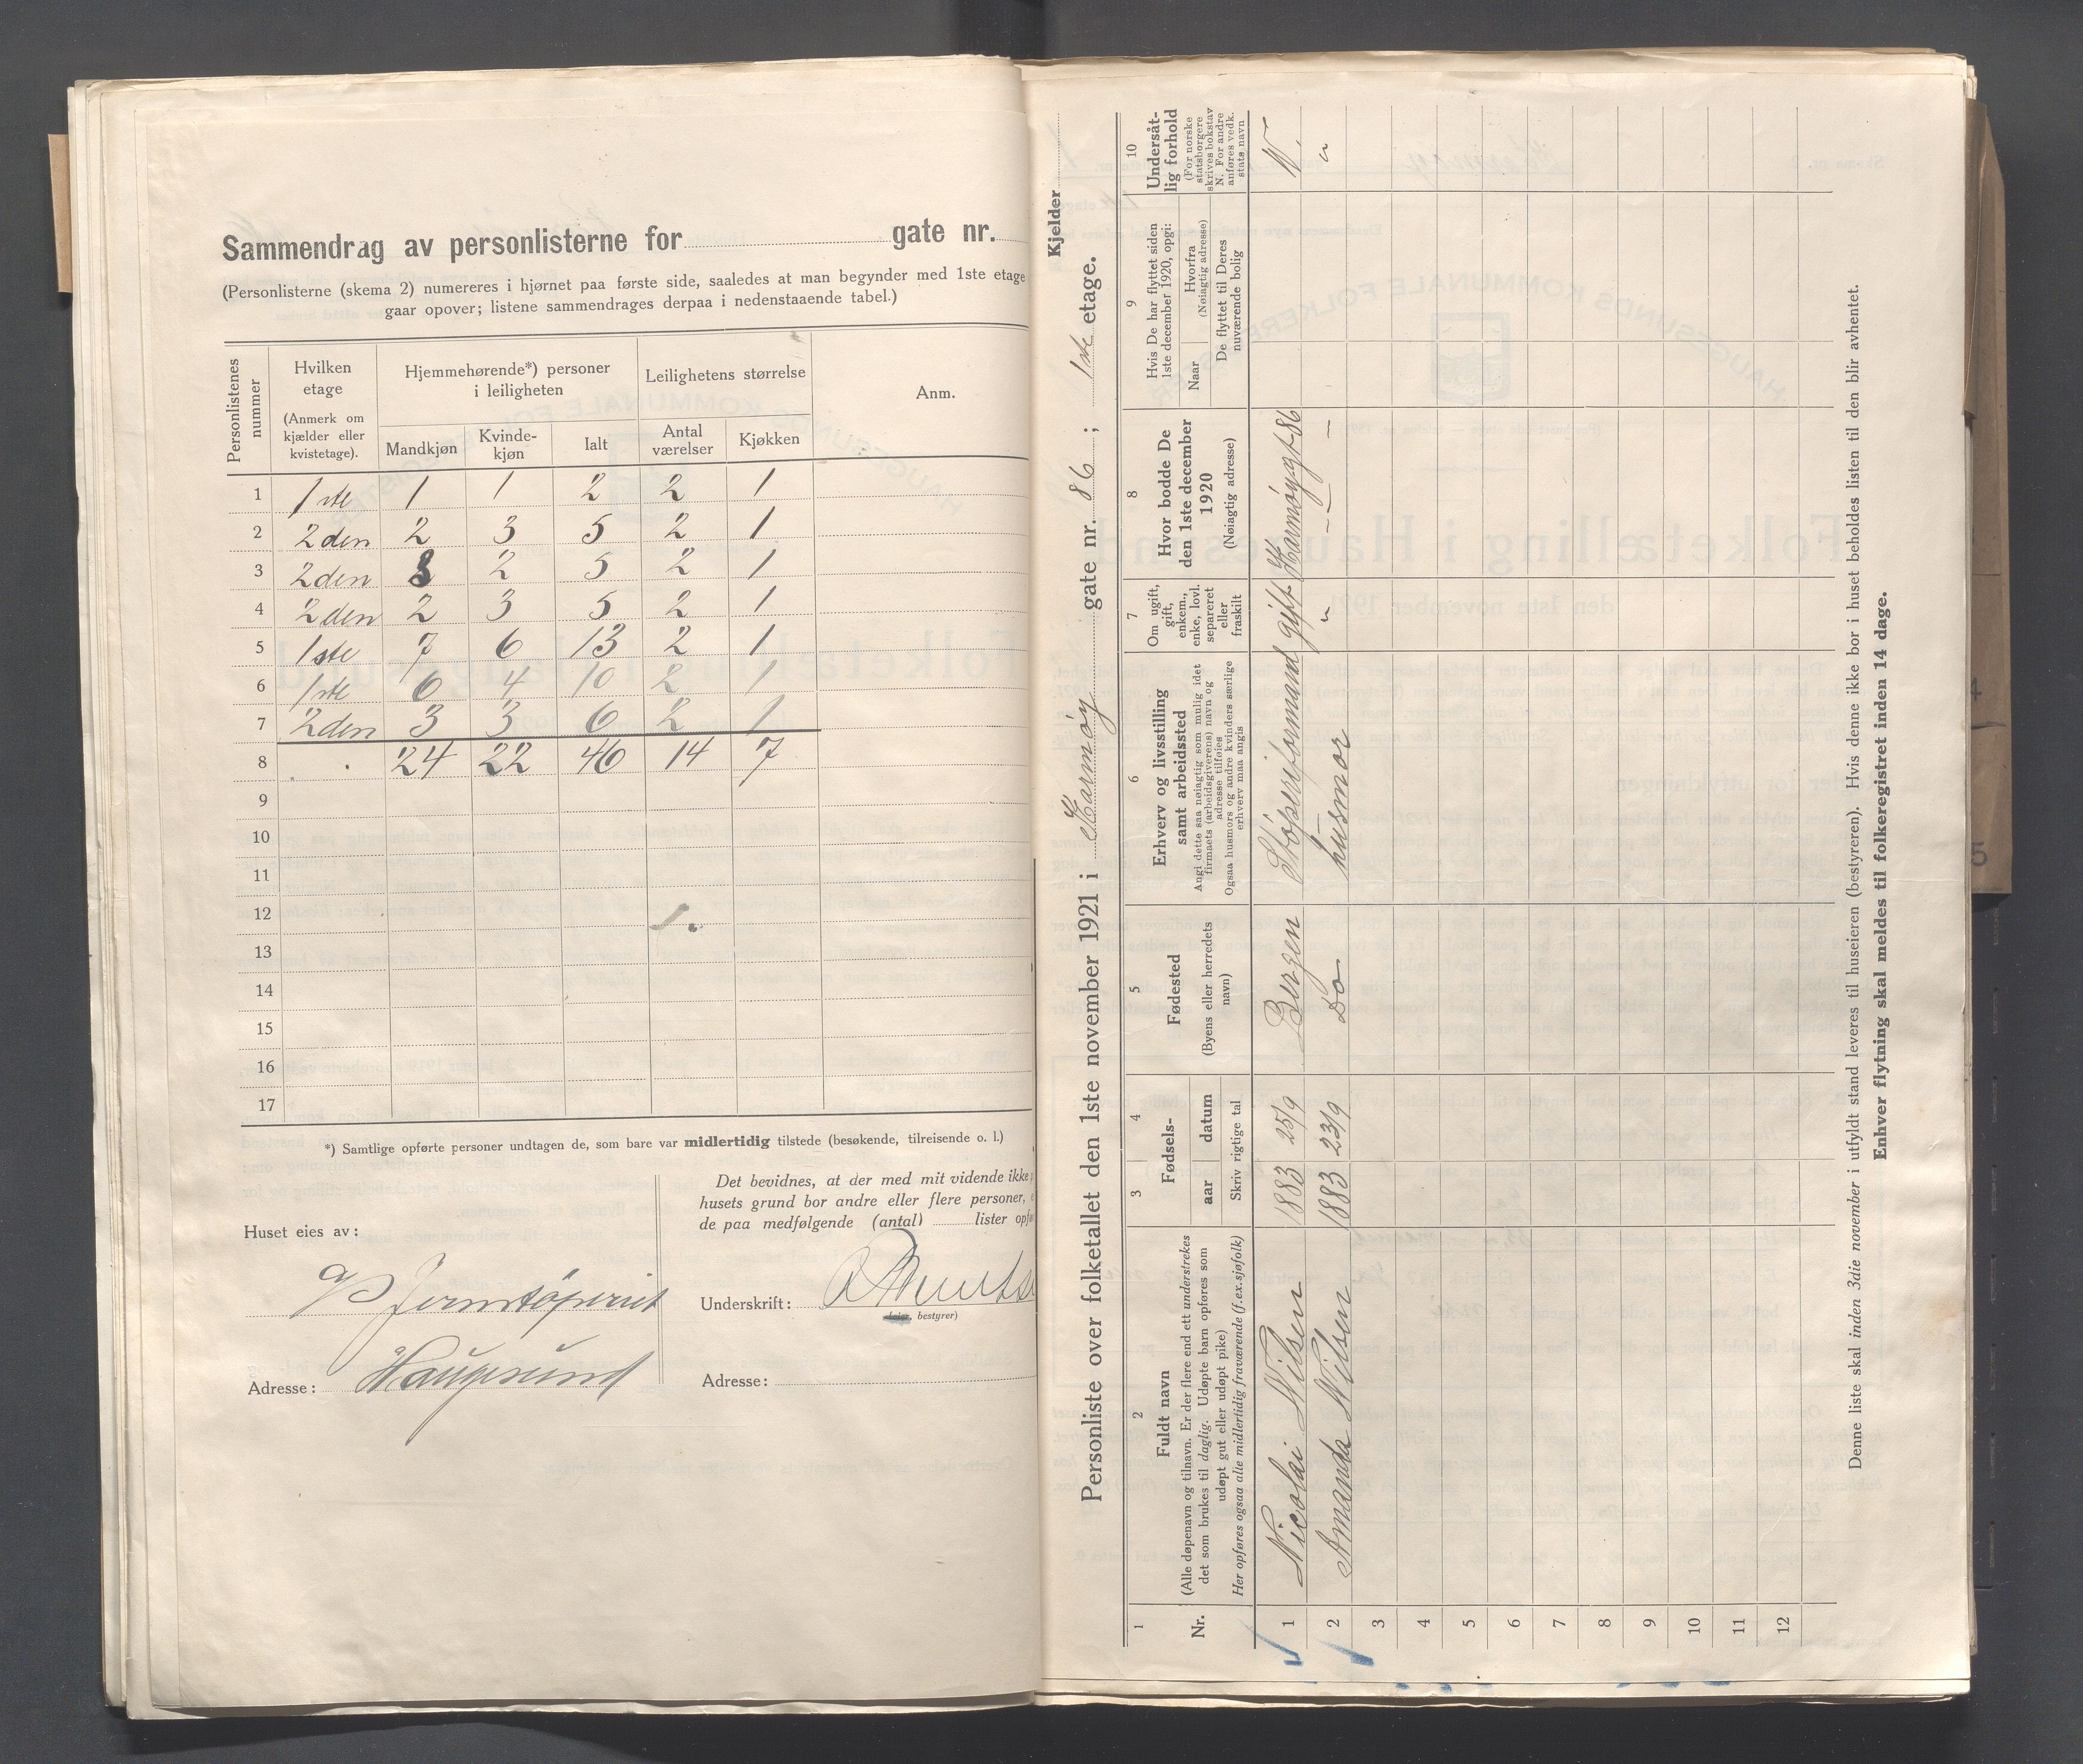 Sammendrag av personlisterne for gate nr.
(Personlisterne (skema 2) numereres i hjørnet paa første side, saaledes at man begynder med 1ste etage
gaar opover; listene sammendrages derpaa i nedenstaaende tabel.)
Personlistenes nummer
Hvilken etage
(Anmerk om kjælder eller kvistetage).
Hjemmehørende*) personer i leiligheten
Mandkjøn
Kvindekjøn
Ialt
Leilighetens størrelse
Antal værelser
Kjøkken
Anm.
1 1ste 1 1 2 2 1
2 2den 2 3 5 2 1
3 2den 3 2 5 2 1
4 2den 2 3 5 2 1
5 1ste 7 6 13 2 1
6 1ste 6 4 10 2 1
7 2den 3 3 6 2 1
8 24 22 46 14 7
9
10
11
12
13
14
15
16
17
*) Samtlige opførte personer undtagen de, som bare var midlertidig tilstede (besøkende, tilreisende o. l.)
Huset eies av:
A/S Jernstøperiet
Adresse: Haugesund
Det bevidnes, at der med mit vidende ikke
husets grund bor andre eller flere personer,
de paa medfølgende (antal) lister
Underskrift:
(eier, bestyrer)
Adresse:
Kjelder
Personliste over folketallet den 1ste november 1921 i Karmøy gate nr. 86; 1ste etage.
1 Nr.
2 Fuldt navn
(Alle døpenavn og tilnavn. Er der flere end ett understrekes
det som brukes til daglig. Udøpte barn opføres som
udøpt gut eller udøpt pike)
Her opføres ogsaa alle midlertidig fraværende (f.ex.sjøfolk)
3 4 Fødsels-
aar datum
Skriv rigtige tal
5 Fødested
(Byens eller herredets navn)
6 Erhverv og livsstilling
samt arbeidssted
Angi dette saa nøiagtig som mulig idet
firmaets (arbeidsgiverens) navn og
adresse tilføies
Ogsaa husmors og andre kvinders særlige
erhverv maa angis
7 Om ugift,
gift,
enkem.,
enke, lovl.
separeret
eller
fraskilt
8 Hvor bodde De
den 1ste december
1920
(Nøiagtig adresse)
9 Hvis De har flyttet siden
1ste december 1920, opgi:
Naar
Hvorfra
(Nøiagtig adresse)
De flyttet til Deres
nuværende bolig
10 Undersåtlig forhold
(For norske
statsborgere
skrives bokstav
N. For andre
anføres vedk.
stats navn
1 Nicolai Nilsen 1883 25/9 Bergen Støperiformand gift Karmøygt 86 N.
2 Amanda Nilsen 1883 23/9 Do husmor " - " - "
3
4
5
6
7
8
9
10
11
12
Denne liste skal inden 3die november i utfyldt stand leveres til huseieren (bestyreren). Hvis denne ikke bor i huset beholdes listen til den blir avhentet.
Enhver flytning skal meldes til folkeregistret inden 14 dage.